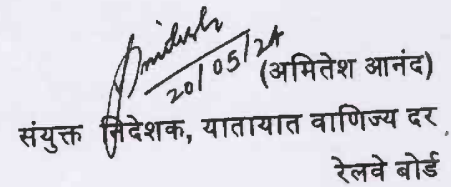 20/05/24
(अमितेश आनंद)
संयुक्त निदेशक, यातायात वाणिज्य दर
रेलवे बोर्ड